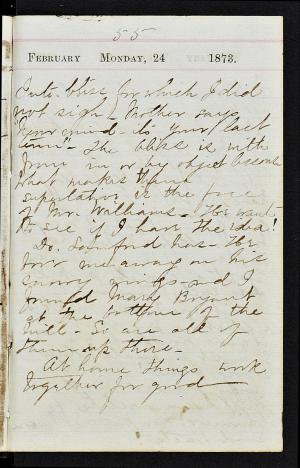 55
FEBRUARY MONDAY, 24 YEAR 1873.
bliss for which I did
not sigh - Mother says
"Your mind - to your last
- The bliss is
in or by object
what makes
superlative is the face
of Mr. Williams - He wants
to see if I have the idea!
Dr. Sanford has - He
bore me away on his
snowy wings and I
found Mary Bryant
at the bottom of the
hill - So are all of
them up there -
At home things work
together for good -